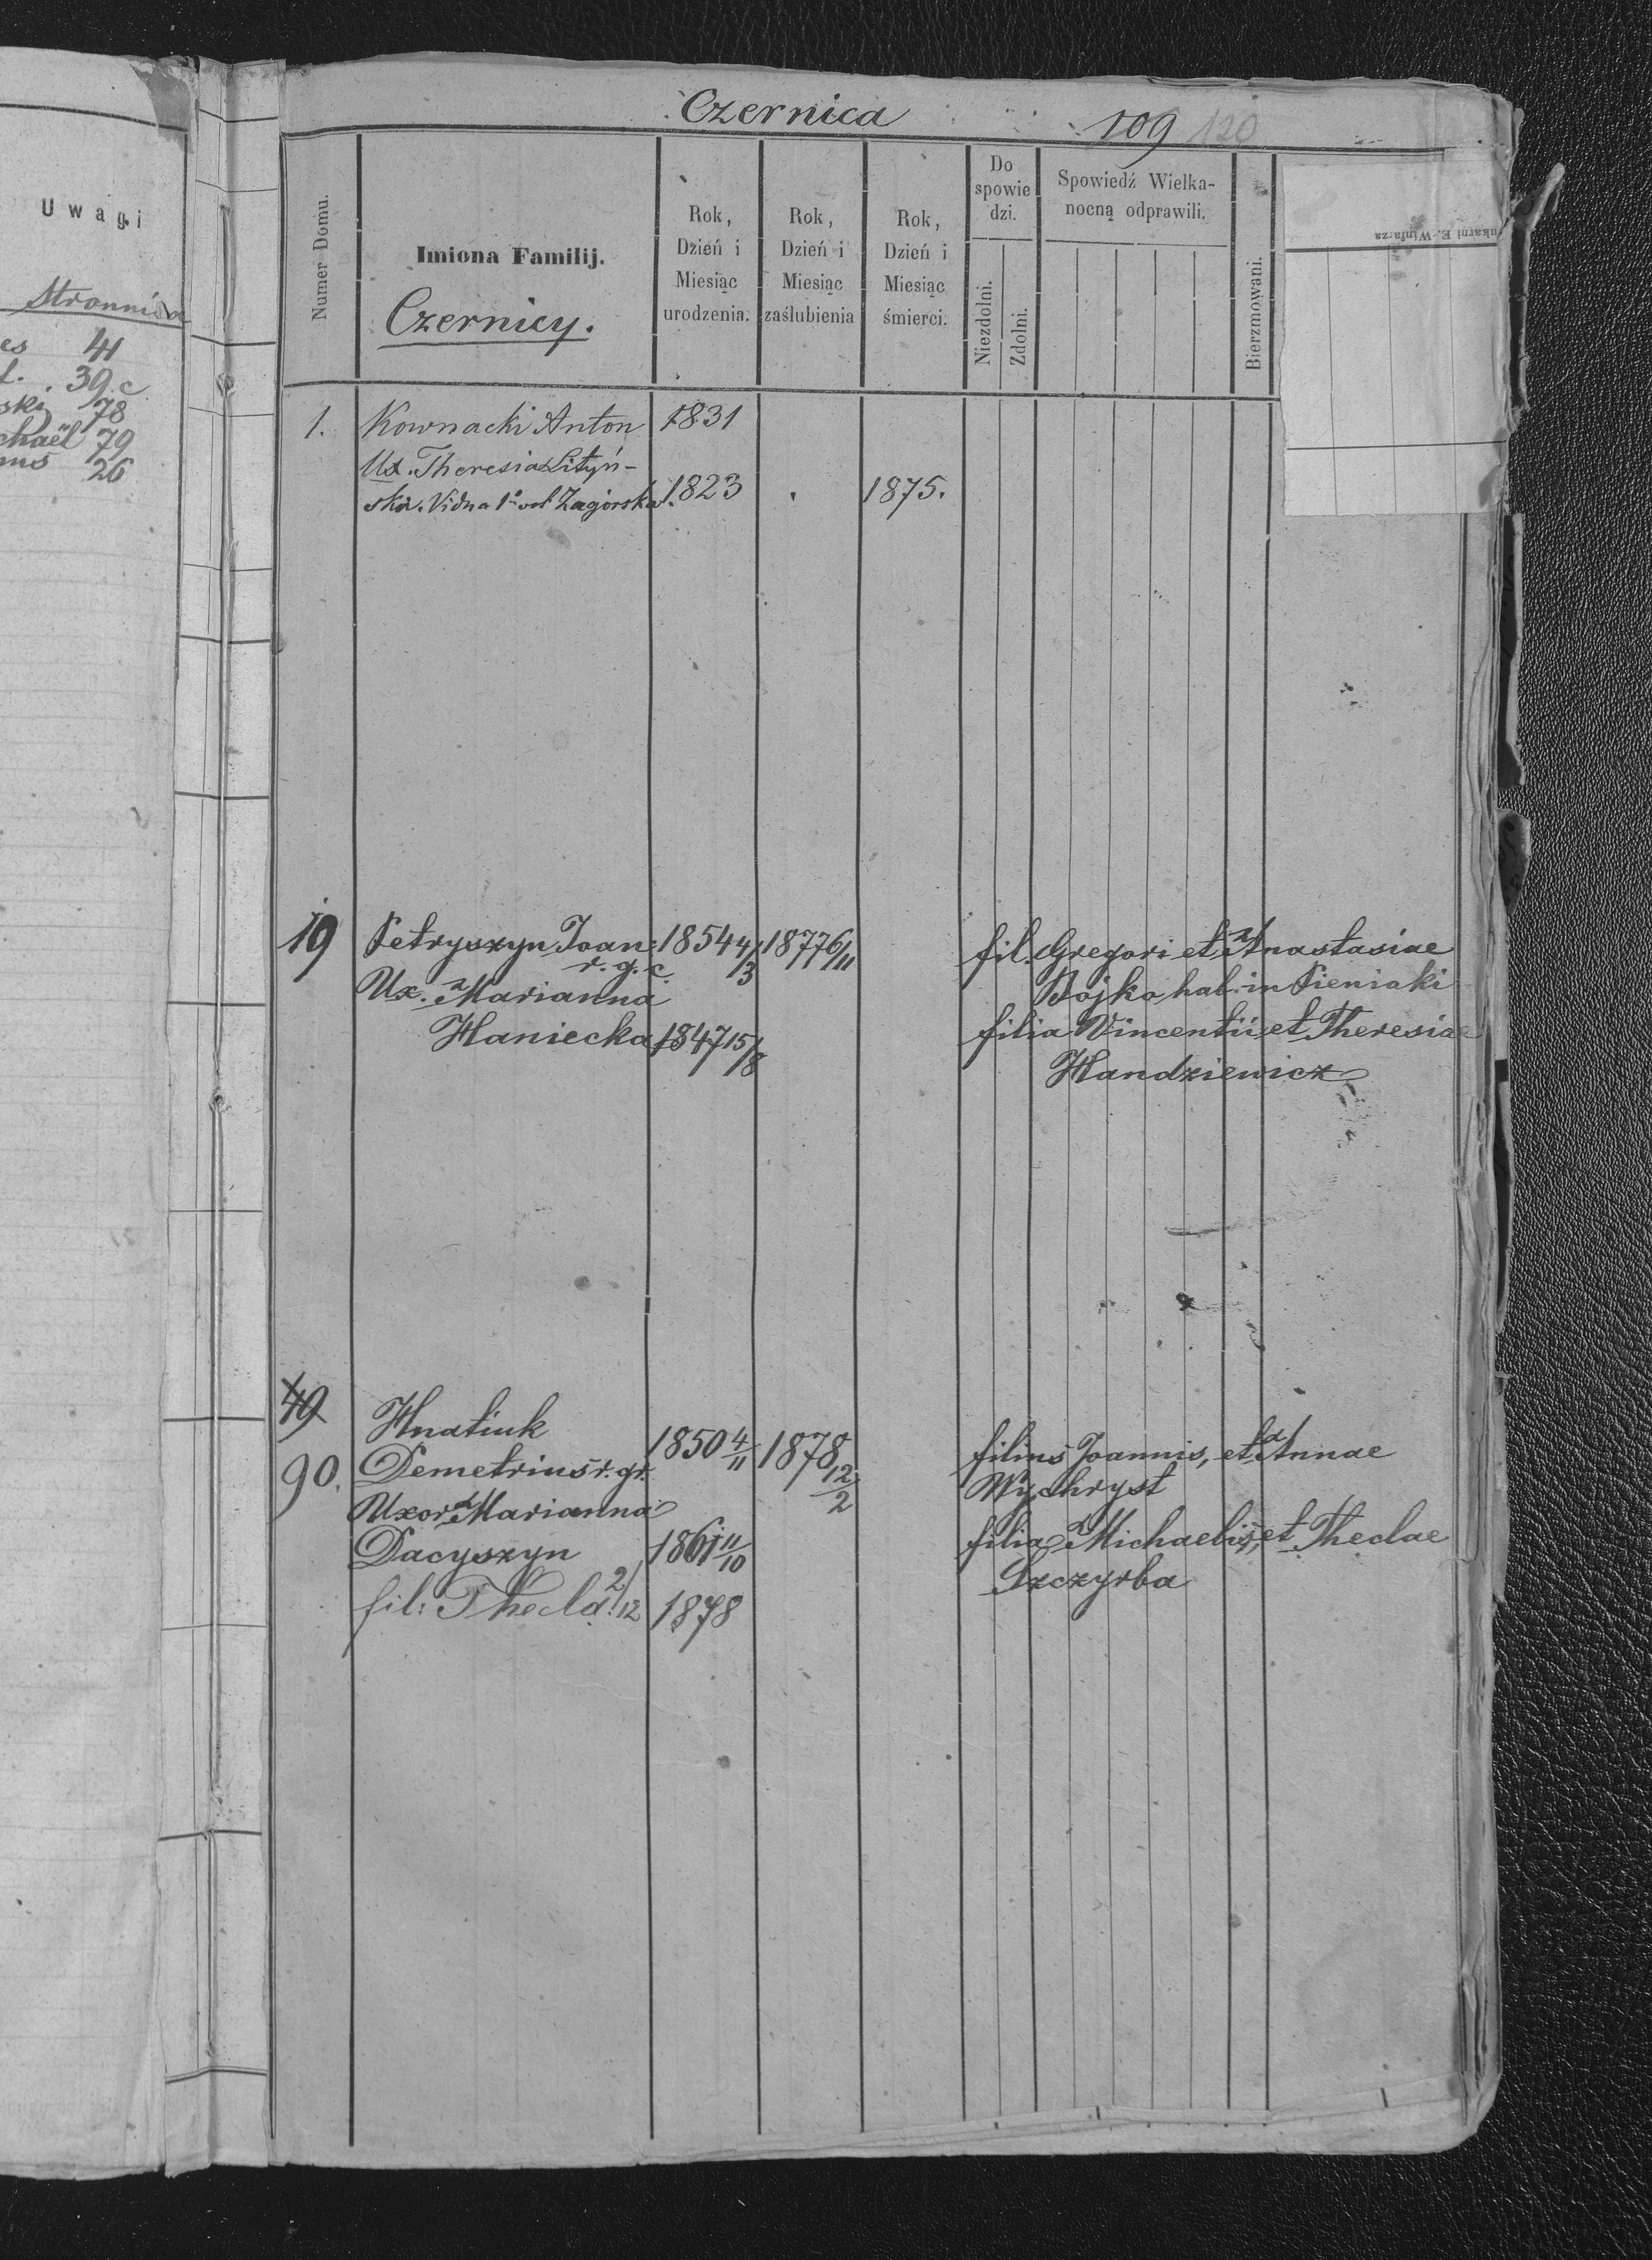 Uwagi
Stronnica
es 41
f. . 39.c
ski 78
chaël 79
nus 26
Czernica
109 120
Numer Domu.
Imiona Familij.
Czernicy.
Rok,
Dzień i
Miesiąc
urodzenia.
Rok,
Dzień i
Miesiąc
zaślubienia
Rok,
Dzień i
Miesiąc
śmierci.
Do
spowie
dzi.
Niezdolni.
Zdolni.
Spowiedź Wielka-
nocną odprawili.
Bierzmowani.
ukarni E. Winiarza
1. Kownacki Anton 1831
Ux. Theresia Lityń-
ska. Vidua 1º vot Zagórska. 1823 1875.
19 Petryszyn Joan: 1854 4/3 1877 6/11 fil. Gregori et Anastasiae
r. g. c. Bojko hab. in Pieniaki
Ux. Marianna
Haniecka 1847 15/8 filia Vincentii et Theresiae
Handziewicz
49 Hnatiuk
90. Demetrius r. gr. 1850 4/11 1878 12/2 filius Joannis, et Annae
Wychryst
Uxor Marianna
Dacyszyn 1861 11/10 filia Michaelis, et Theclae
Szczyrba
fil: Thecla 2/12 1878